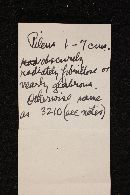 Pileus 1-7 cm.
and obscurely
radiately fibrillose or
nearly glabrous.
Otherwise same
as 3210 (see notes)